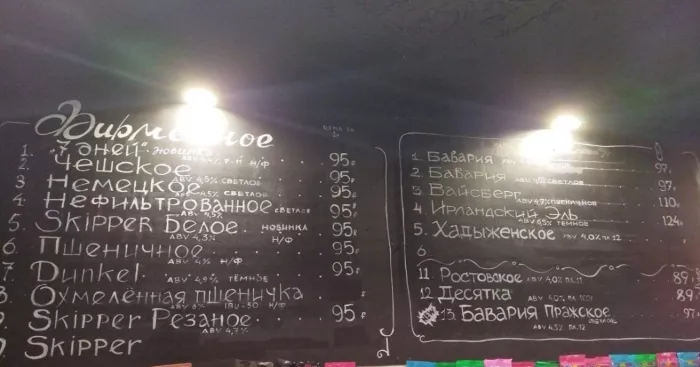 Фирменное
цена за
1. "7 дней" новинка 95р
н/ф
2. Чешское 95р
ABV 4,5% светлое
3. Немецкое 95р
4,5% светлое
4. Нефильтрованное светлое 95р
ABV 4,5%
5. Skipper Белое новинка 95р
ABV 4,3% н/ф
6. Пшеничное 95р
ABV 4% н/ф
7. Dunkel 95р
ABV 4,0% тёмное
8. Охмелённая пшеничка
н/ф
9. Skipper Резаное 95р
ABV 4,7%
Skipper
1. Бавария 97р
2. Бавария 97р
светлое
3. Вайсберг 110р
пшеничное
4. Ирландский Эль 124р
тёмное
5. Хадыженское ABV 4,0% пл.12
6
11 Ростовское ABV 4,0% пл.11 89р
12 Десятка ABV 4,0% 89
13. Бавария Пражское 97
ABV 4,5% пл.12